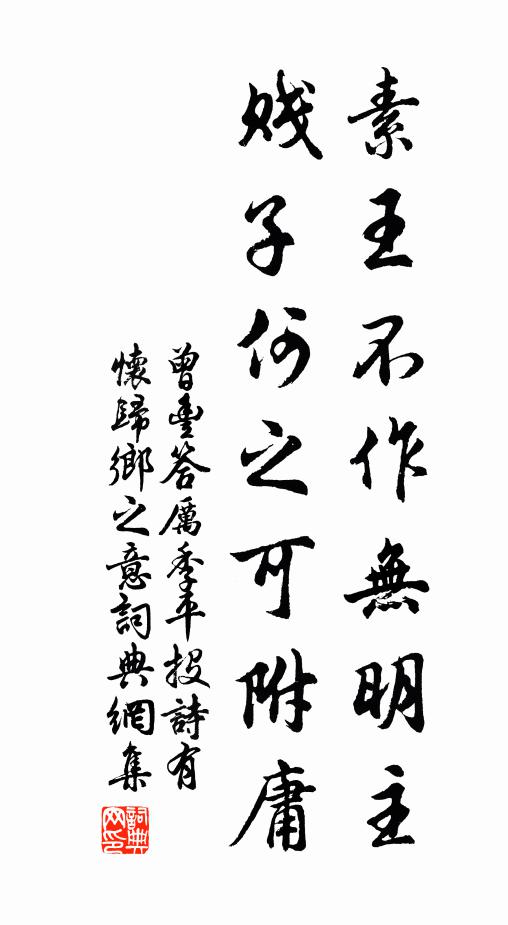 素王不作無明主
賤子何之可附庸
曾豐答厲季平投詩有
懷歸鄉之意詞典網集
詞典
网印